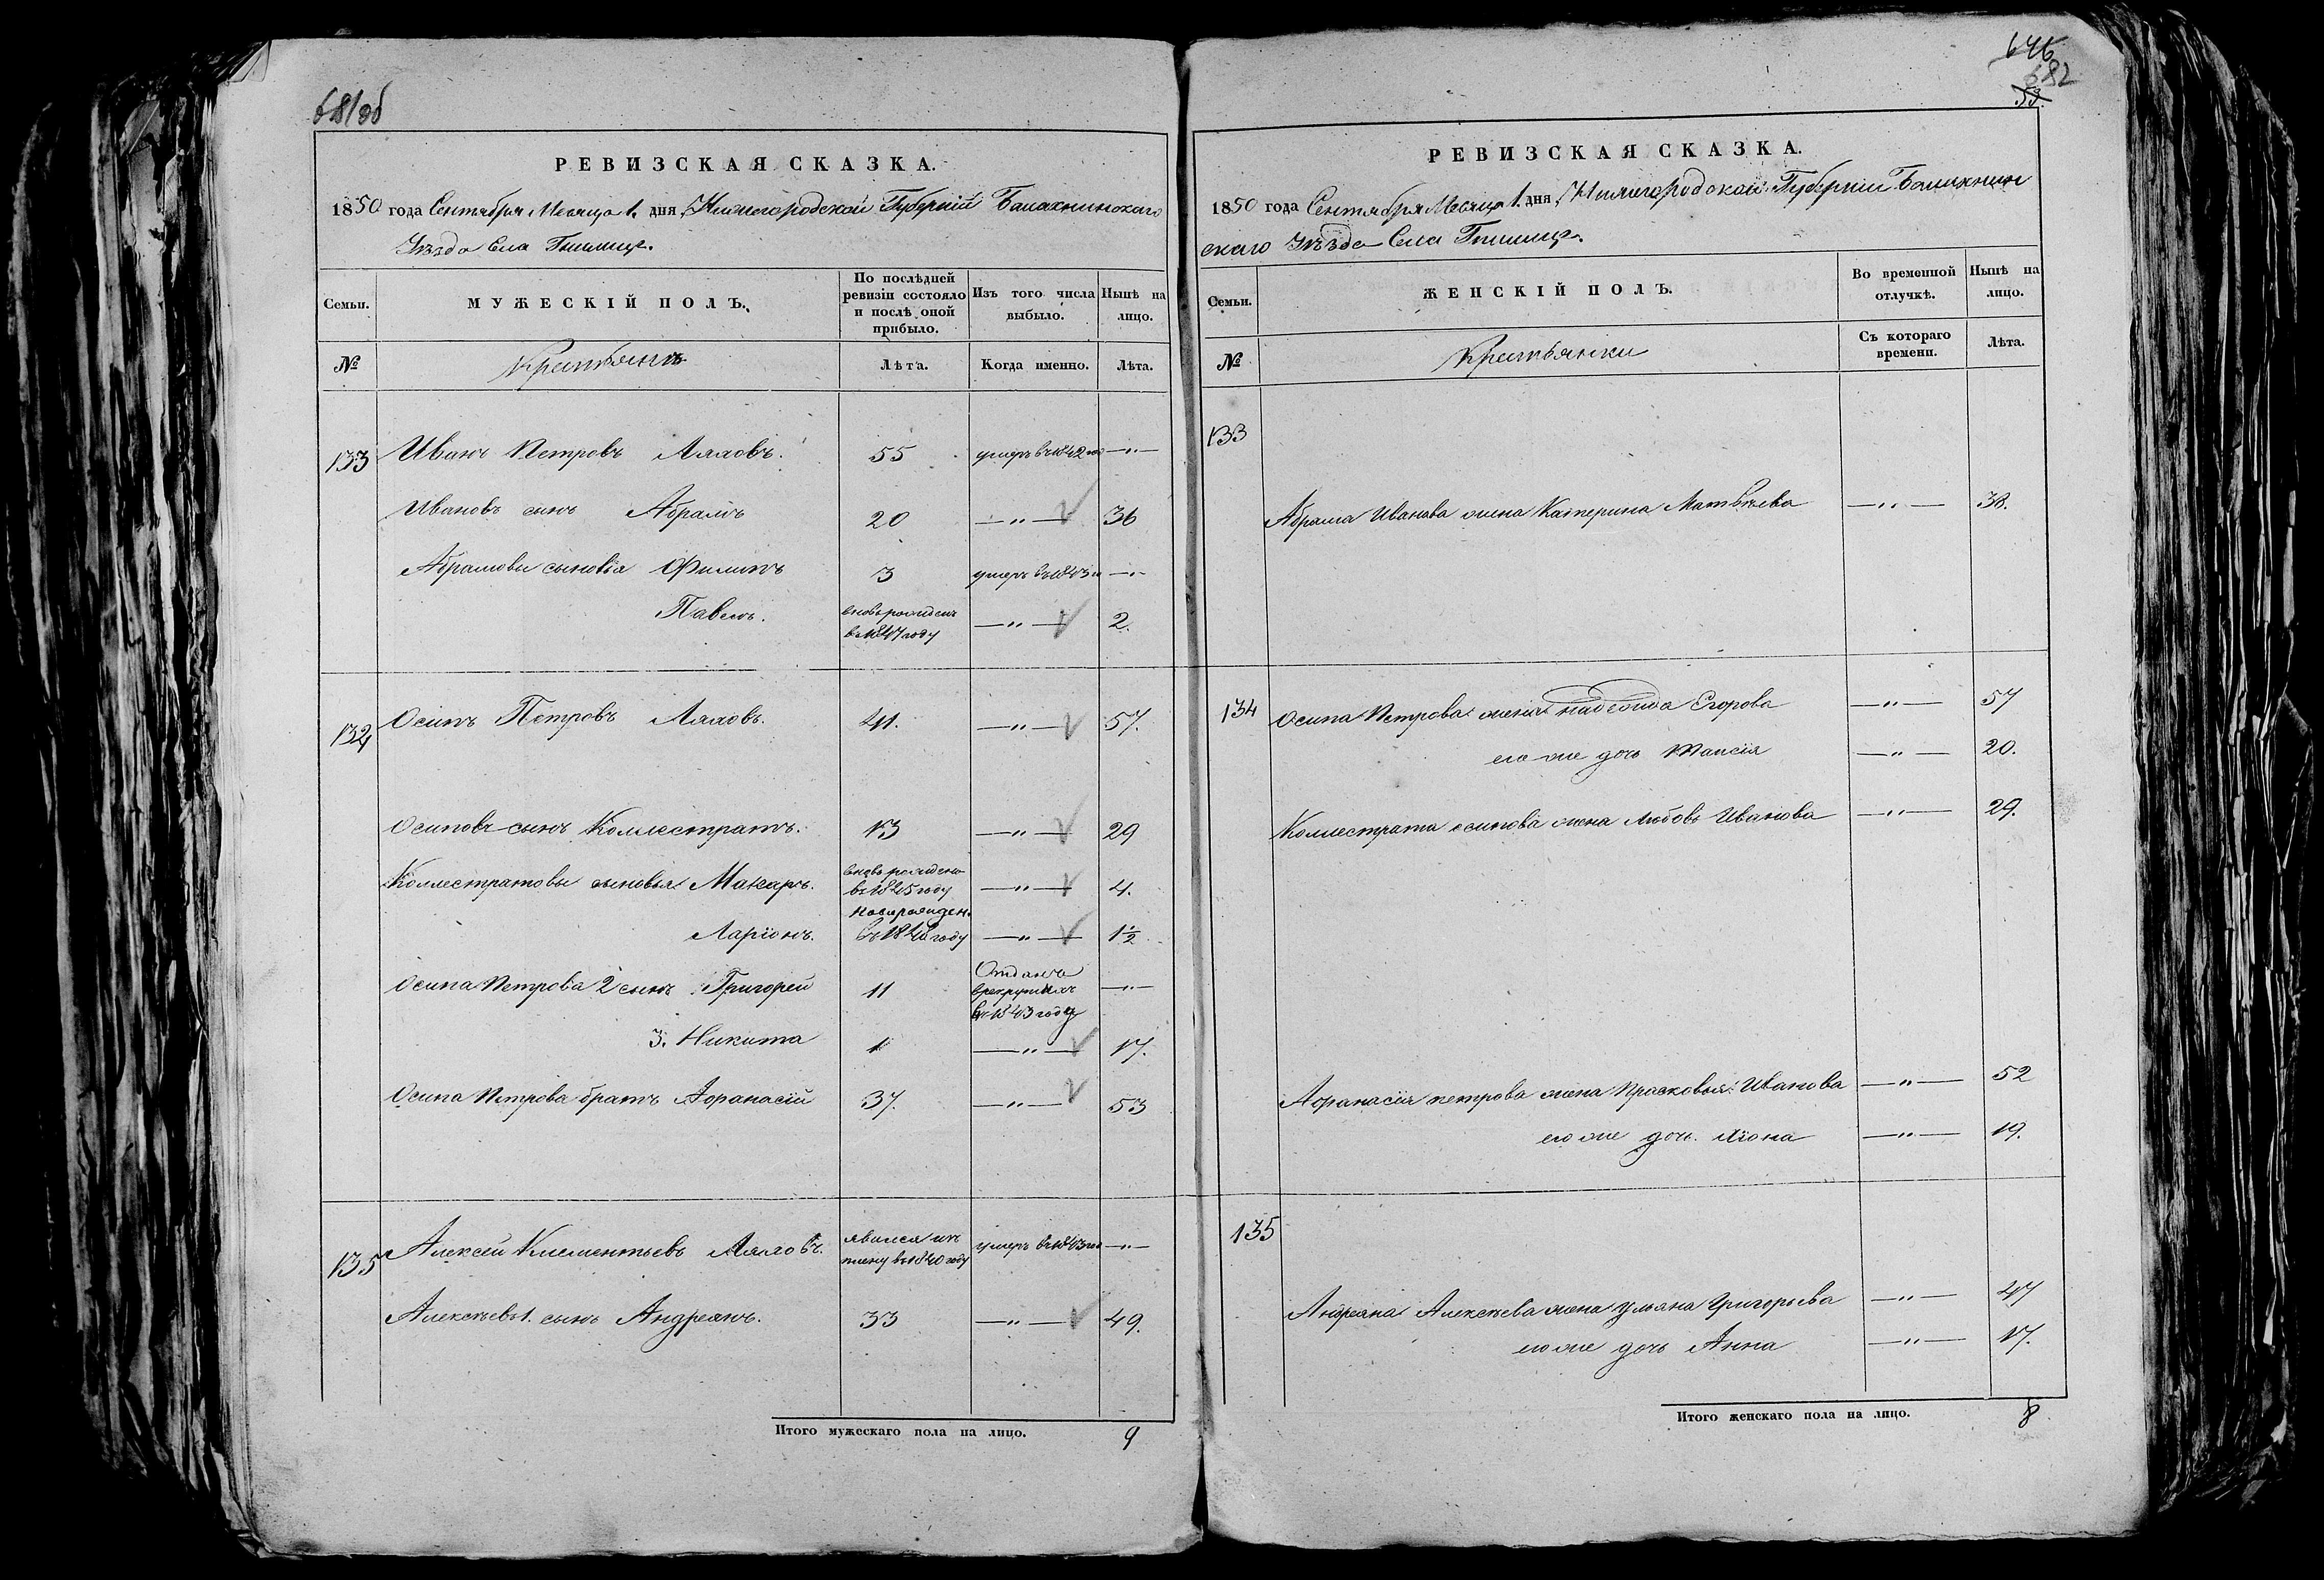 681об
РЕВИЗСКАЯ СКАЗКА.
1850 года Сентября Месяца 1. дня Нижегородской Губерніи Балахнинскаго
Уѣзда Села Гнилиц.
Семьи.
МУЖЕСКІЙ ПОЛЪ.
По послѣдней ревизіи состояло и послѣ оной прибыло.
Изъ того числа выбыло.
Нынѣ на лицо.
№
Крестьянъ
Лѣта.
Когда именно.
Лѣта.
133 Иванъ Петровъ Ляловъ. 55 умеръ въ 1842 го —〃—
Ивановъ сынъ Абрамъ 20 —〃— 36
Абрамовы сыновья Филипъ 3 умеръ въ 1843 го —〃—
Павелъ. вновь рожденъ —〃— 2.
въ 1847 году
134 Осипъ Петровъ Ляловъ. 41. —〃— 57.
Осиповъ сынъ Коллестратъ. 13 —〃— 29
Коллестратовы сыновья Макаръ. вновь рожденъ —〃— 4.
въ 1845 году
новорожден.
Ларіонъ. въ 1848 году —〃— 1½
Осипа Петрова 2 сынъ Григорей 11 Отданъ —〃—
в рекруты
въ 1843 году
3. Никита 1 —〃— 17.
Осипа Петрова братъ Афанасій 37. —〃— 53
135 Алексей Клементьевъ Ляловъ. явился из умеръ въ 1843 го —〃—
плену в 1840 году
Алексѣевъ 1. сынъ Андреянъ. 33 —〃— 49.
Итого мужескаго пола на лицо. 9
646
682
53.
РЕВИЗСКАЯ СКАЗКА.
1850 года Сентября Месяца 1. дня Нижегородской Губернии Балахнин
скаго Уѣзда Села Гнилиц.
Семьи.
ЖЕНСКІЙ ПОЛЪ.
Во временной отлучкѣ.
Нынѣ на лицо.
№
Крестьянки
Съ котораго времени.
Лѣта.
133
Абрама Иванова жена Катерина Матвѣева —〃— 38.
134 Осипа Петрова жена надежда Егорова —〃— 57
его же дочь Таисія —〃— 20.
Коллестрата осипова жена Любовь Иванова —〃— 29.
Афанасія петрова жена Прасковья Иванова —〃— 52
его же дочь —〃— 19.
135
Андреяна Алексѣева жена ульяна Григорьева —〃— 47
его же дочь Анна —〃— 17.
Итого женскаго пола на лицо. 8